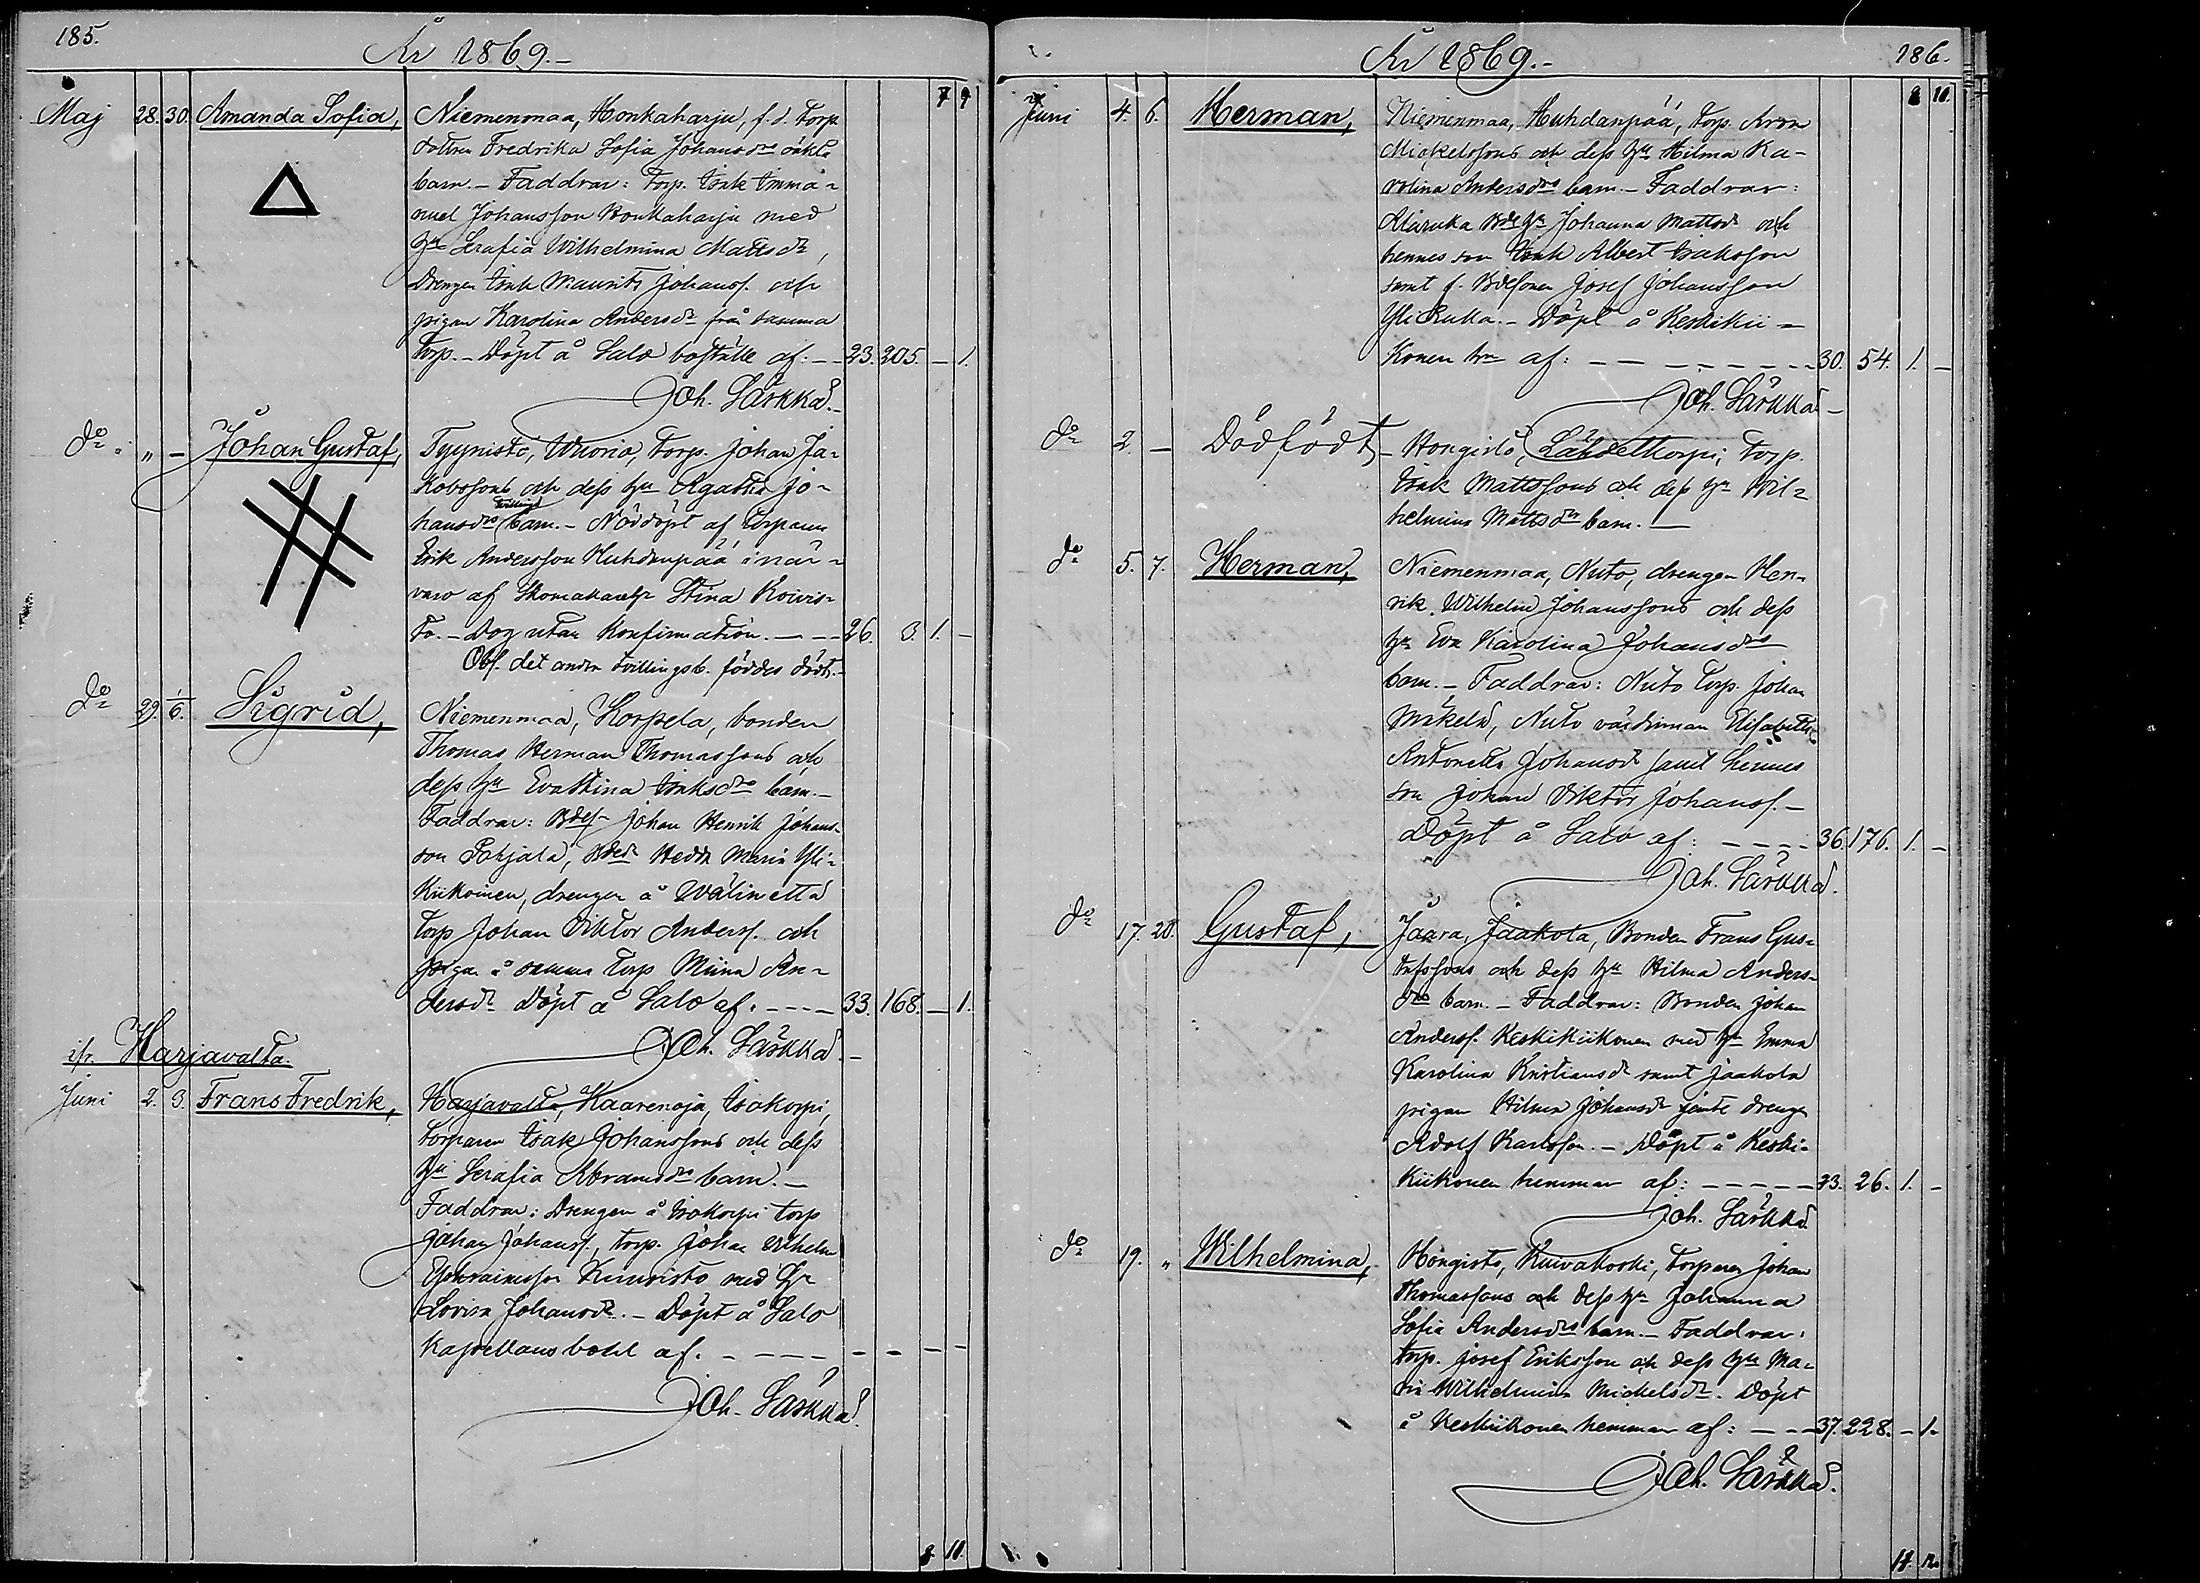 185.
År 1869.-
7 9
Maj 28. 30. Amanda Sofia, Niemenmaa, Honkaharju, f.d. Torp.
dottren Fredrika Sofia Johansdrs oäkta
barn. - Faddrar: Torp. Isak Emma-
nuel Johansson Honkaharju med
hu Serafia Wilhelmina Mattsdr,
Drengen Isak Maurits Johanss. och
pigan Karolina Andersdr från samma
Torp. - Döpt å Salo boställe af: - - 23. 205. - 1.
Joh. Särkkä.-
do „ - Johan Gustaf, Tyynistö, Wuorio, Torp. Johan Ja-
kobssons och dess hu Agatha Jo-
hansdrs tvillings barn. - Nöddöpt af Torparen
Erik Andersson Huhdanpää i när-
varo af Skomakareh. Stina Koivis-
to. - Dog utan Konfirmation. - - - 26. 3. 1. -
Obs. det andra tvillingsb. föddes dödt.-
do 29. 1/6. Sigrid, Niemenmaa, Korpela, bonden
Thomas Herman Thomassons och
dess hu Eva Stina Isaksdrs barn. -
Faddrar: Bdes. Johan Henrik Johans-
son Pohjala, Bdedr Hedda Maria Yli-
Kiikoinen, drengen å Wälimettä
Torp Johan Viktor Anderss. och
pigan å samma Torp Miina An-
dersdr Döpt å Salo af: - - - - 33. 168. - 1.
Joh. Särkkä.-
ifr. Harjavalta.
Juni 2. 3. Frans Fredrik, Harjavalta, Kaarenoja, Isokorpi,
torparen Isak Johanssons och dess
hu Serafia Abramsdrs barn. -
Faddrar: Drengen å Isokorpi Torp
Johan Johanss., Torp. Johan Wilhelm
Ephraimsson Kuuristo med hu
Lovisa Johansdr. - Döpt å Salo
Kapellans bohl af. - - - - - - - -
Joh. Särkkä.
8. 10.
År 1869.-
186.
8 10.
Juni 4. 6. Herman, Niemenmaa, Huhdanpää, Torp. Aron
Mickelssons och dess hu Hilma Ka-
rolina Andersdrs barn. - Faddrar:
Bdehu Johanna Mattsdr och
hennes son Isak Albert Isaksson
samt f. Bdesonen Josef Johansson
Yli Rukka. - Döpt å Keskikii-
Konen hn af: - - - - - - - 30. 54. 1. -
Joh. Särkkä -
do 2. - Dödfödt, - Hongisto, Lähdekorpi, Torp.
Isak Mattssons och dess hu Wil-
helmina Mattsdrs barn. -
do 5. 7. Herman, Niemenmaa, Nuto, drengen Hen-
rik Wilhelm Johanssons och dess
hu Eva Karolina Johansdrs
barn. - Faddrar: Nuto Torp. Johan
Mäkelä, Nuto värdinnan Elisabeth
Antonetta Johansdr samt hennes
son Johan Viktor Johanss. -
Döpt å Salo af: - - - - 36. 176. 1. -
Joh. Särkkä.
do 17. 20. Gustaf, Jaara, Jaakola, Bonden Frans Gus-
tafssons och dess hu Hilma Anders-
drs barn. - Faddrar: Bonden Johan
Anderss. Keskikiikonen med hu Emma
Karolina Kristiansdr samt Jaakola
pigan Hilma Johansdr jemte drengen
Adolf Karlsson. - Döpt å Keski-
Kiikonen hemman af: - - - - - 33. 26. 1. -
Joh. Särkkä
do 19. „ Wilhelmina, Hongisto, Kuivakoski, Torparen Johan
Thomassons och dess hu Johanna
Sofia Andersdrs barn. - Faddrar:
Torp. Josef Eriksson och dess hu Ma-
ria Wilhelmina Mickelsdr. Döpt
å Keskikiikonen hemman af: - - - 37. 228. - 1.
Joh. Särkkä.
11. 12.